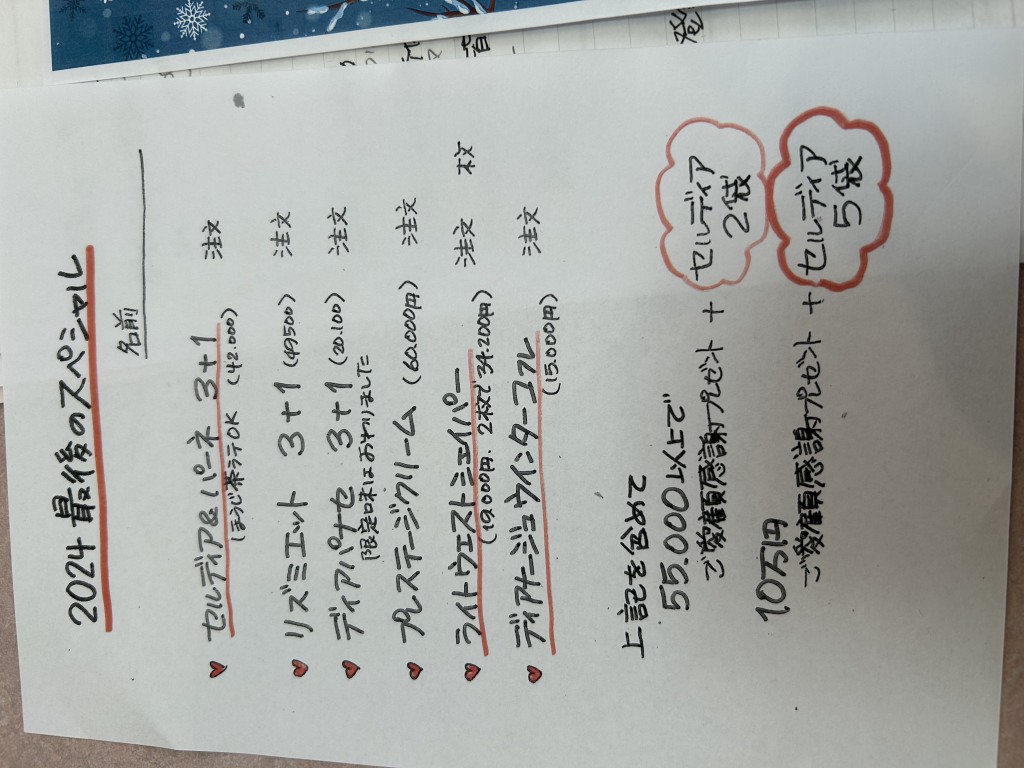 2024 最後のスペシャル
名前
セルディア&パーネ 3+1 注文
(ほうじ茶ラテOK (42.000)
リズミエット 3+1 (49500) 注文
ディアパナセ 3+1 (20.100) 注文
限定口味はおわりました
プレステージクリーム (60.000円) 注文
ライトウエストシェイパー 注文 枚
(19,000円、2枚で34.200円)
ディアナージュウインターコフレ 注文
(15.000円)
上記を含めて
55.000以上で
ご愛顧感謝プレゼント + セルディア 2袋
10万円
ご愛顧感謝プレゼント + セルディア 5袋